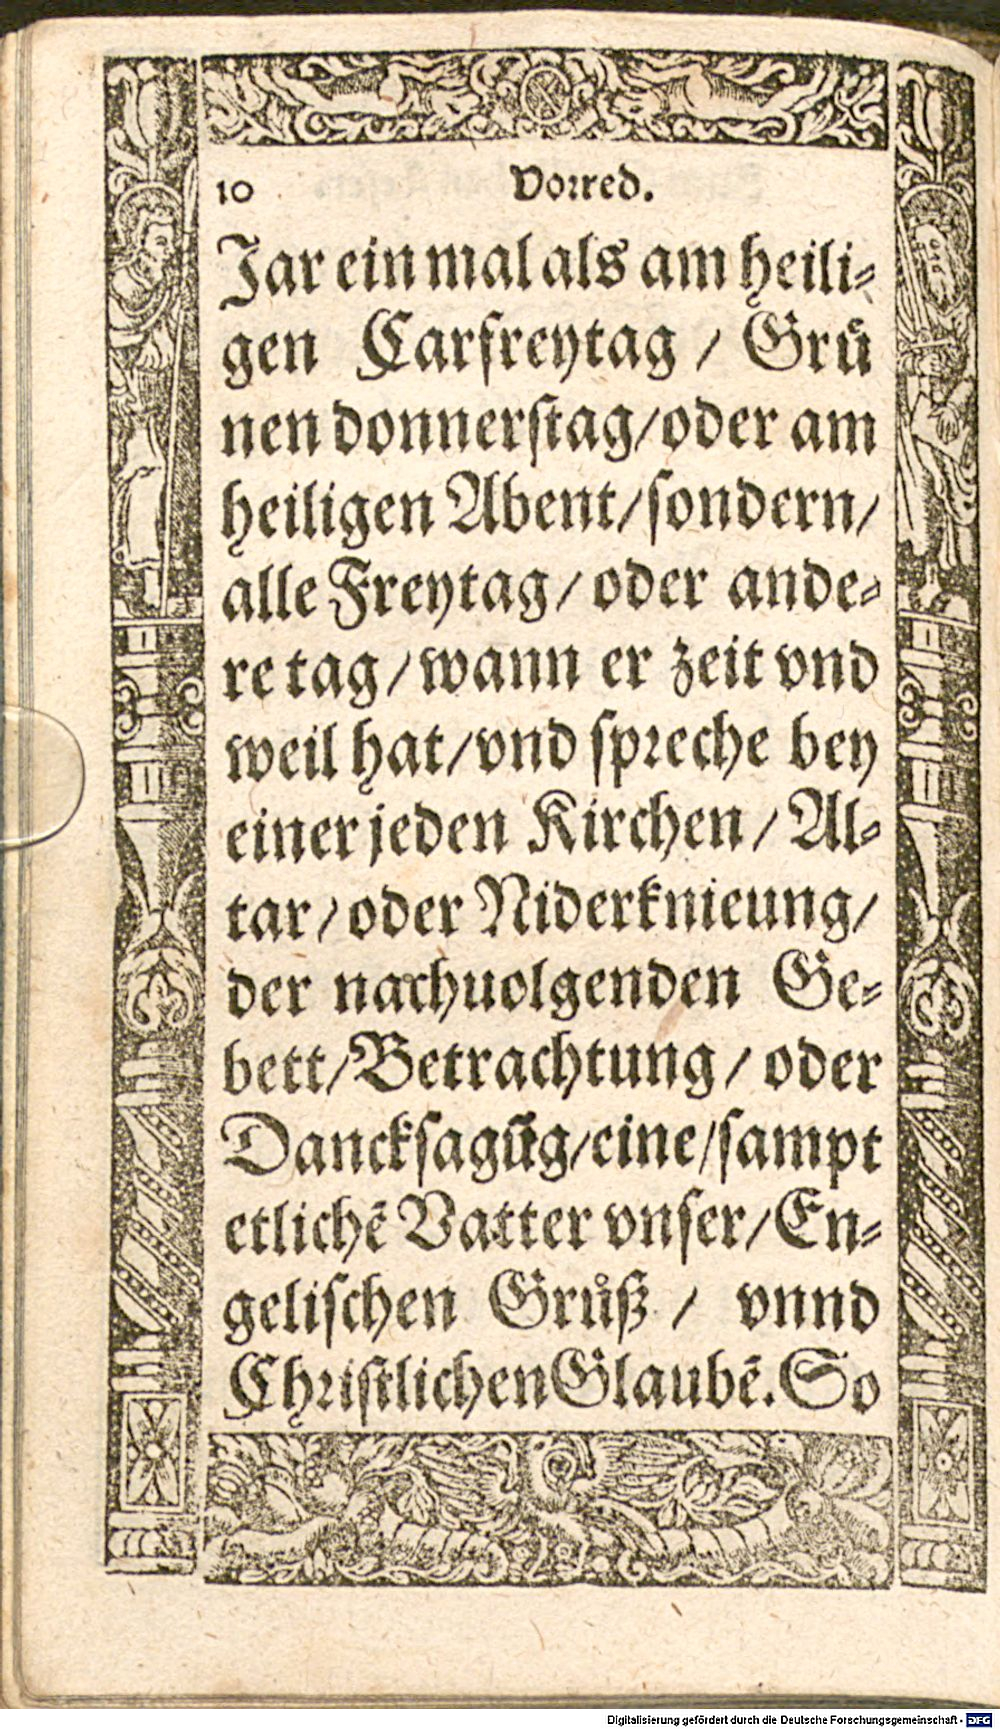 10 Vorred.
Jar ein mal als am heili⸗
gen Carfreytag / Gruͤ
nen donnerſtag/oder am
heiligen Abent/ſondern/
alle Freytag/ oder ande⸗
re tag/wann er zeit vnd
weil hat/vnd ſpreche bey
einer jeden Kirchen/ Al⸗
tar/oder Niderknieung/
der nachuolgenden Ge⸗
bett/Betrachtung/ oder
Danckſagũg/eine/ſampt
etlichẽ Vatter vnſer/En⸗
geliſchen Gruͤß / vnnd
Chriſtlichen Glaubẽ. So
Digitalisierung gefördert durch die Deutsche Forschungsgemeinschaft - DFG